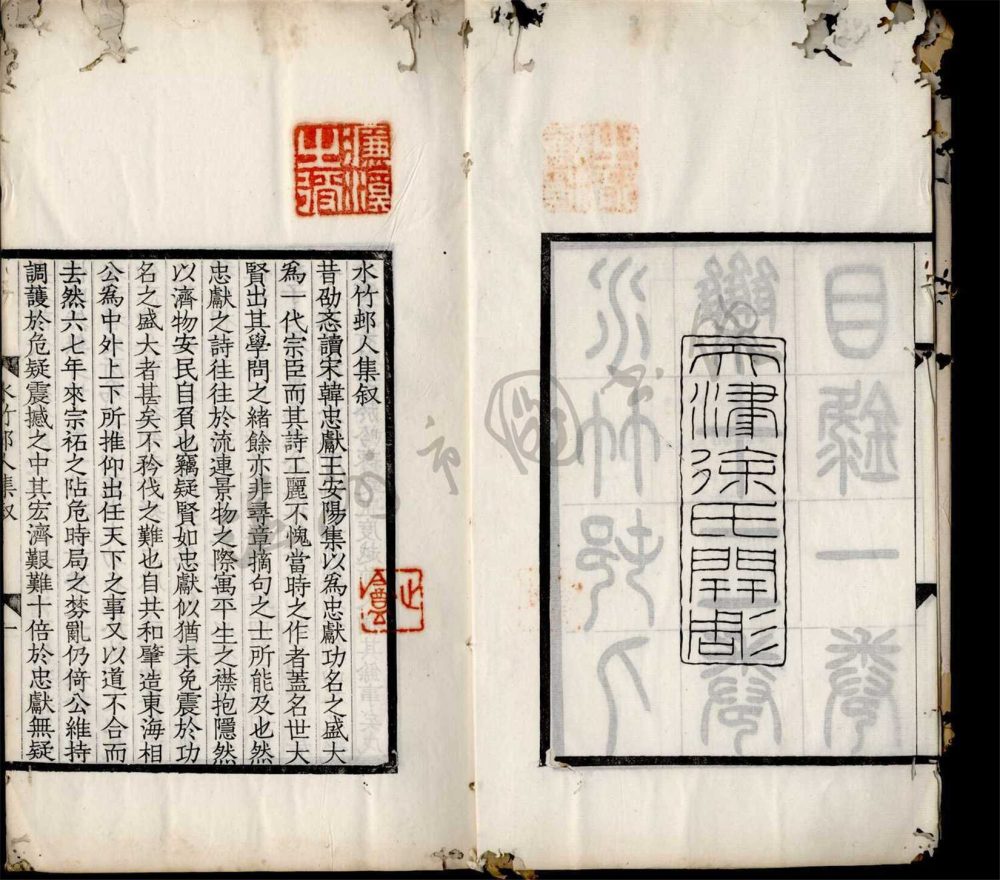 天津徐氏開雕
水竹邨人集叙
昔劭忞讀宋韓忠獻王安陽集以爲忠獻功名之盛大
爲一代宗臣而其詩工麗不愧當時之作者蓋名世大
賢出其學問之緒餘亦非尋章摘句之士所能及也然
忠獻之詩往往於流連景物之際寓平生之襟抱隱然
以濟物安民自負也竊疑賢如忠獻似猶未免震於功
名之盛大者甚矣不矜伐之難也自共和肇造東海相
公爲中外上下所推仰出任天下之事又以道不合而
去然六七年來宗祏之阽危時局之棼亂仍倚公維持
調護於危疑震撼之中其宏濟艱難十倍於忠獻無疑
水竹邨人集叙
一